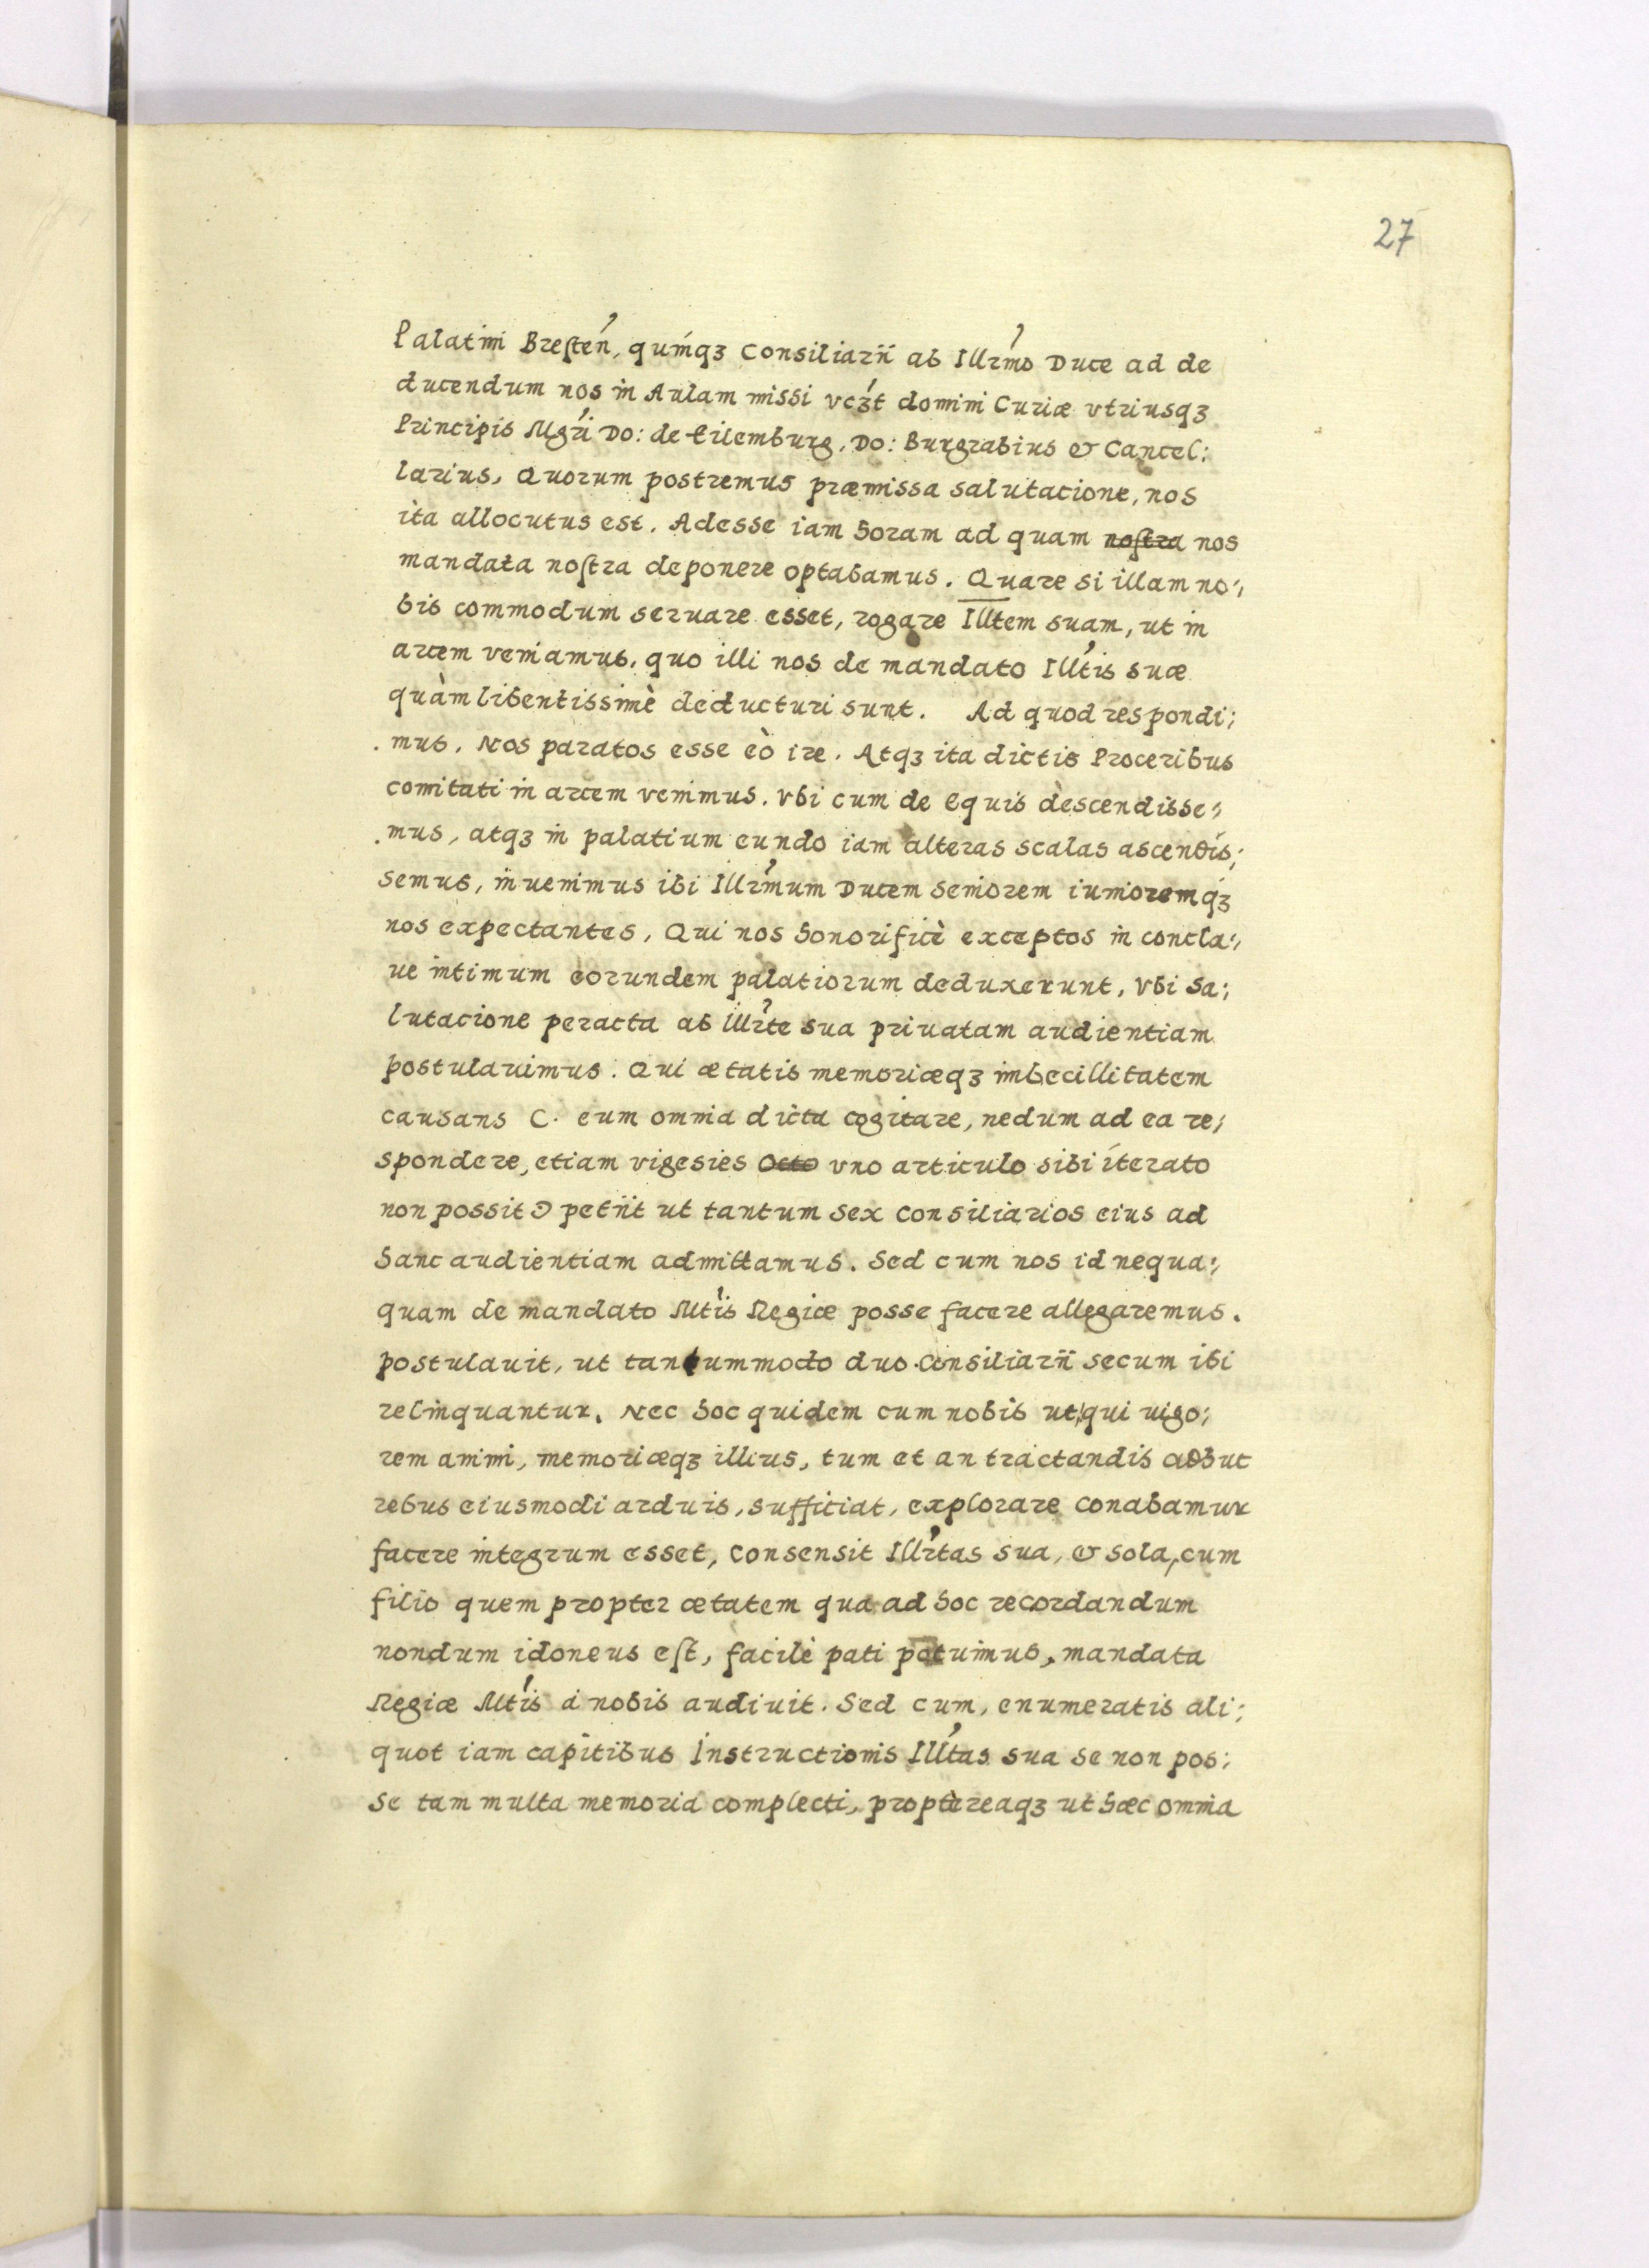 27
Palatini Bresteń, quinqꝫ Consiliarii ab Illr̃mo Duce ad de
ducendum nos in Aulam missi vcꝫt domini Curiæ vtriusqꝫ
Principis Mgr̃i Do: de Eilemburg, Do: Burgrabius & Cancel:
larius, Quorum postremus præmissa salutacione, nos
ita allocutus est. Adesse iam horam ad quam nostra nos
mandata nostra deponere optabamus. Quare si illam no:,
bis commodum seruare esset, rogare Illtem suam, ut in
arcem veniamus, quo illi nos de mandato Illtis suæ
quàm libentissimè deducturi sunt. Ad quod respondi:
mus, Nos paratos esse eò ire. Atqꝫ ita dictis Proceribus
comitati in arcem venimus. Vbi cum de equis descendisse:,
mus, atqꝫ in palatium eundo iam alteras scalas ascendis:
semus, inuenimus ibi Illr̃mum Ducem seniorem iunioremqꝫ
nos expectantes, Qui nos honorificè exceptos in concla:,
ue intimum eorundem palatiorum deduxerunt, Vbi sa:,
lutacione peracta ab Illr̃te sua priuatam audientiam
postulauimus. Qui ætatis memoriæqꝫ imbecillitatem
causans C. eum omnia dicta cogitare, nedum ad ea re:
spondere, etiam vigesies Octo vno articulo sibi iterato
non possit Ɔ petiit ut tantum sex consiliarios eius ad
hanc audientiam admittamus. Sed cum nos id nequa:,
quam de mandato Mtis Regiæ posse facere allegaremus.
postulauit, ut tantummodo duo Consiliarii secum ibi
relinquantur. Nec hoc quidem cum nobis ut qui uigo:
rem animi, memoriæqꝫ illius, tum et an tractandis adhuc
rebus eiusmodi arduis, suffitiat, explorare conabamur
facere integrum esset, Consensit Illr̃tas sua, & sola, cum
filio quem propter ætatem qua ad hoc recordandum
nondum idoneus est, facilè pati potuimus, mandata
Regiæ Mtis à nobis audiuit. Sed cum, enumeratis ali:
quot iam capitibus Instructionis Illtas sua se non pos:
se tam multa memoria complecti, proptereaqꝫ ut hæc omnia